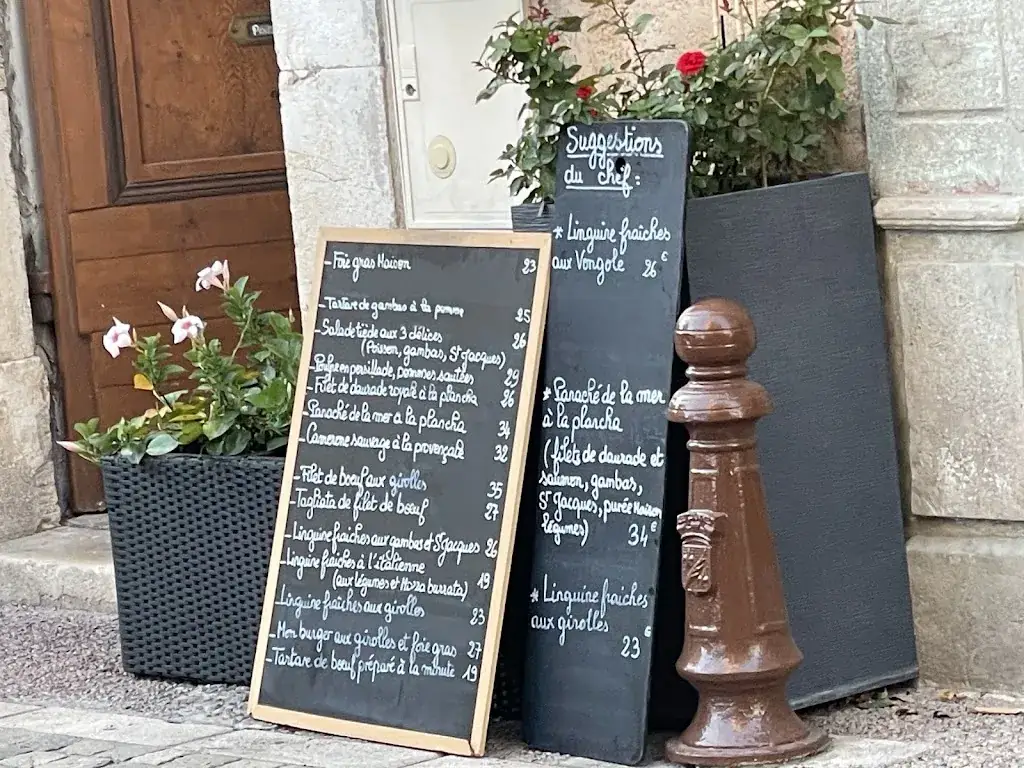 - Foie gras Maison 23
- Tartare de gambas à la pomme 25
- Salade tiède aux 3 délices 26
(Poisson, gambas, St Jacques)
- Poulpe en persillade, pommes sautées 29
- Filet de daurade royale à la plancha 26
- Panaché de la mer à la plancha 34
- Camerone sauvage à la provençale 32
- Filet de boeuf aux girolles 35
- Tagliata de filet de boeuf 27
- Linguine fraiches aux gambas et St Jacques 26
- Linguine fraiches à l'italienne
(aux légumes et Mozza burrata) 19
- Linguine fraîches aux girolles 23
- Mon burger aux girolles et foie gras 27
- Tartare de boeuf préparé à la minute 19
Suggestions
du chef :
* Linguine fraiches
aux Vongole 26€
* Panaché de la mer
à la plancha
(filets de daurade et
saumon, gambas,
St Jacques, purée Maison
légumes) 34€
* Linguine fraiches
aux girolles
23€